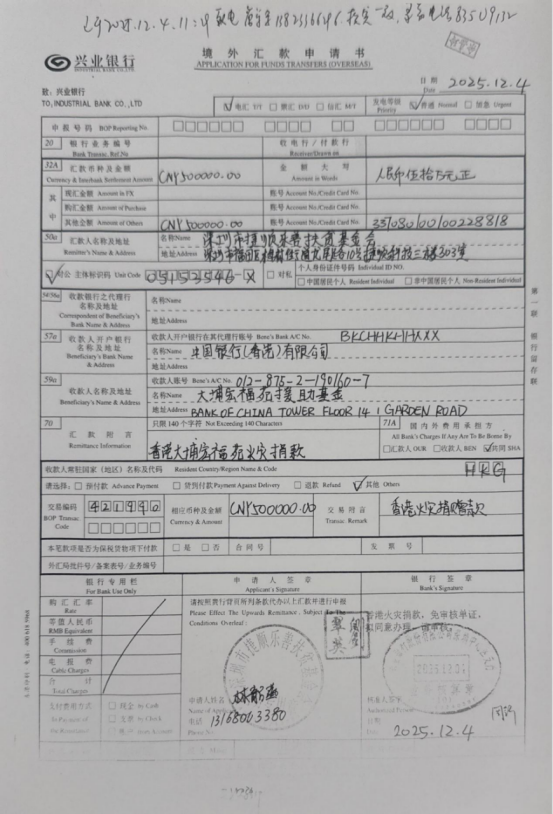 兴业银行
INDUSTRIAL BANK CO.,LTD.
境外汇款申请书
APPLICATION FOR FUNDS TRANSFERS (OVERSEAS)
致：兴业银行
TO, INDUSTRIAL BANK CO., LTD
日期 Date 2025.12.4
☑电汇 T/T □票汇 D/D □信汇 M/T 发电等级 Priority ☑普通 Normal □加急 Urgent
申报号码 BOP Reporting No.
20 银行业务编号 Bank Transac. Ref.No 收电行/付款行 Receiver/Drawn on
32A 汇款币种及金额 Currency & Interbank Settlement Amount CNY500000.00 金额大写 Amount in Words 人民币伍拾万元正
其中 现汇金额 Amount in FX 账号 Account No./Credit Card No.
购汇金额 Amount of Purchase 账号 Account No./Credit Card No.
其他金额 Amount of Others CNY500000.00 账号 Account No./Credit Card No.
50a 汇款人名称及地址 Remitter's Name & Address 名称Name
地址Address
☑对公 主体标识码 Unit Code □对私 个人身份证件号码 Individual ID NO.
□中国居民个人 Resident Individual □非中国居民个人 Non-Resident Individual
54/56a 收款银行之代理行名称及地址 Correspondent of Beneficiary's Bank Name & Address 名称Name
地址Address
57a 收款人开户银行名称及地址 Beneficiary's Bank Name & Address 收款人开户银行在其代理行账号 Bene's Bank A/C No. BKCHHKHHXXX
名称Name 中国银行(香港)有限公司
地址Address
59a 收款人名称及地址 Beneficiary's Name & Address 收款人账号 Bene's A/C No. 012-875-2-190160-7
名称Name 大埔宏福苑援助基金
地址Address BANK OF CHINA TOWER FLOOR 14 1 GARDEN ROAD
70 汇款附言 Remittance Information 只限140个字符 Not Exceeding 140 Characters 71A 国内外费用承担方
All Bank's Charges If Any Are To Be Borne By
香港大埔宏福苑火灾捐款 □汇款人 OUR □收款人 BEN ☑共同 SHA
收款人常驻国家（地区）名称及代码 Resident Country/Region Name & Code HKG
请选择：□预付款 Advance Payment □货到付款 Payment Against Delivery □退款 Refund ☑其他 Others
交易编码 BOP Transac. Code 相应币种及金额 Currency & Amount CNY500000.00 交易附言 Transac. Remark 香港火灾捐赠款
本笔款项是否为保税货物项下付款 □是 □否 合同号 发票号
外汇局批件号/备案表号/业务编号
银行专用栏 For Bank Use Only 申请人签章 Applicant's Signature 银行签章 Bank's Signature
购汇汇率 Rate
等值人民币 RMB Equivalent
手续费 Commission
电报费 Cable Charges
合计 Total Charges
请按照贵行背页所列条款代办以上汇款并进行申报
Please Effect The Upwards Remittance, Subject To The Conditions Overleaf:
香港火灾捐款，免审核单证，
支付费用方式 □现金 by Cash
□支票 by Check
申请人姓名
电话 13168003380
2025.12.4
第一联 银行留存联